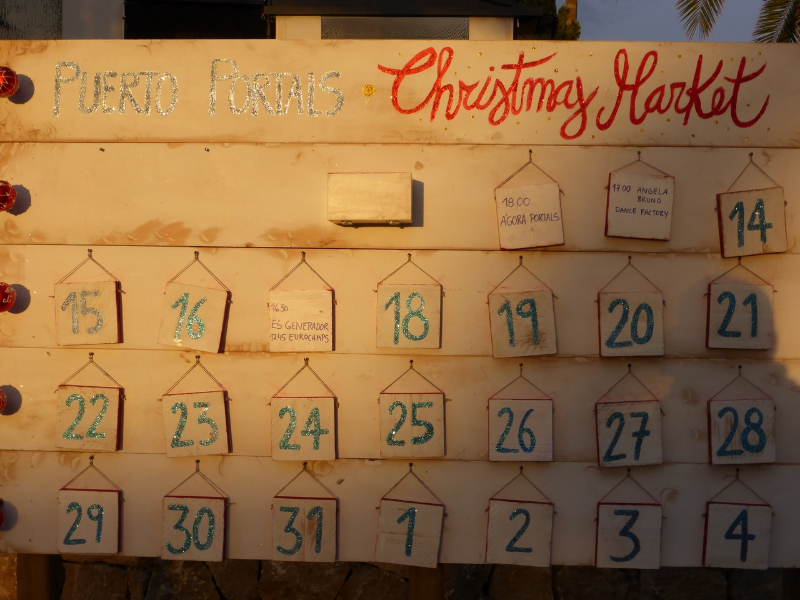 PUERTO PORTALS Christmas Market
18.00
ÁGORA PORTALS
17.00 ANGELA
BRUNO
DANCE FACTORY
14
15 16
16.30
ES GENERADOR
1245 EUROCHAMPS
18 19 20 21
22 23 24 25 26 27 28
29 30 31 1 2 3 4